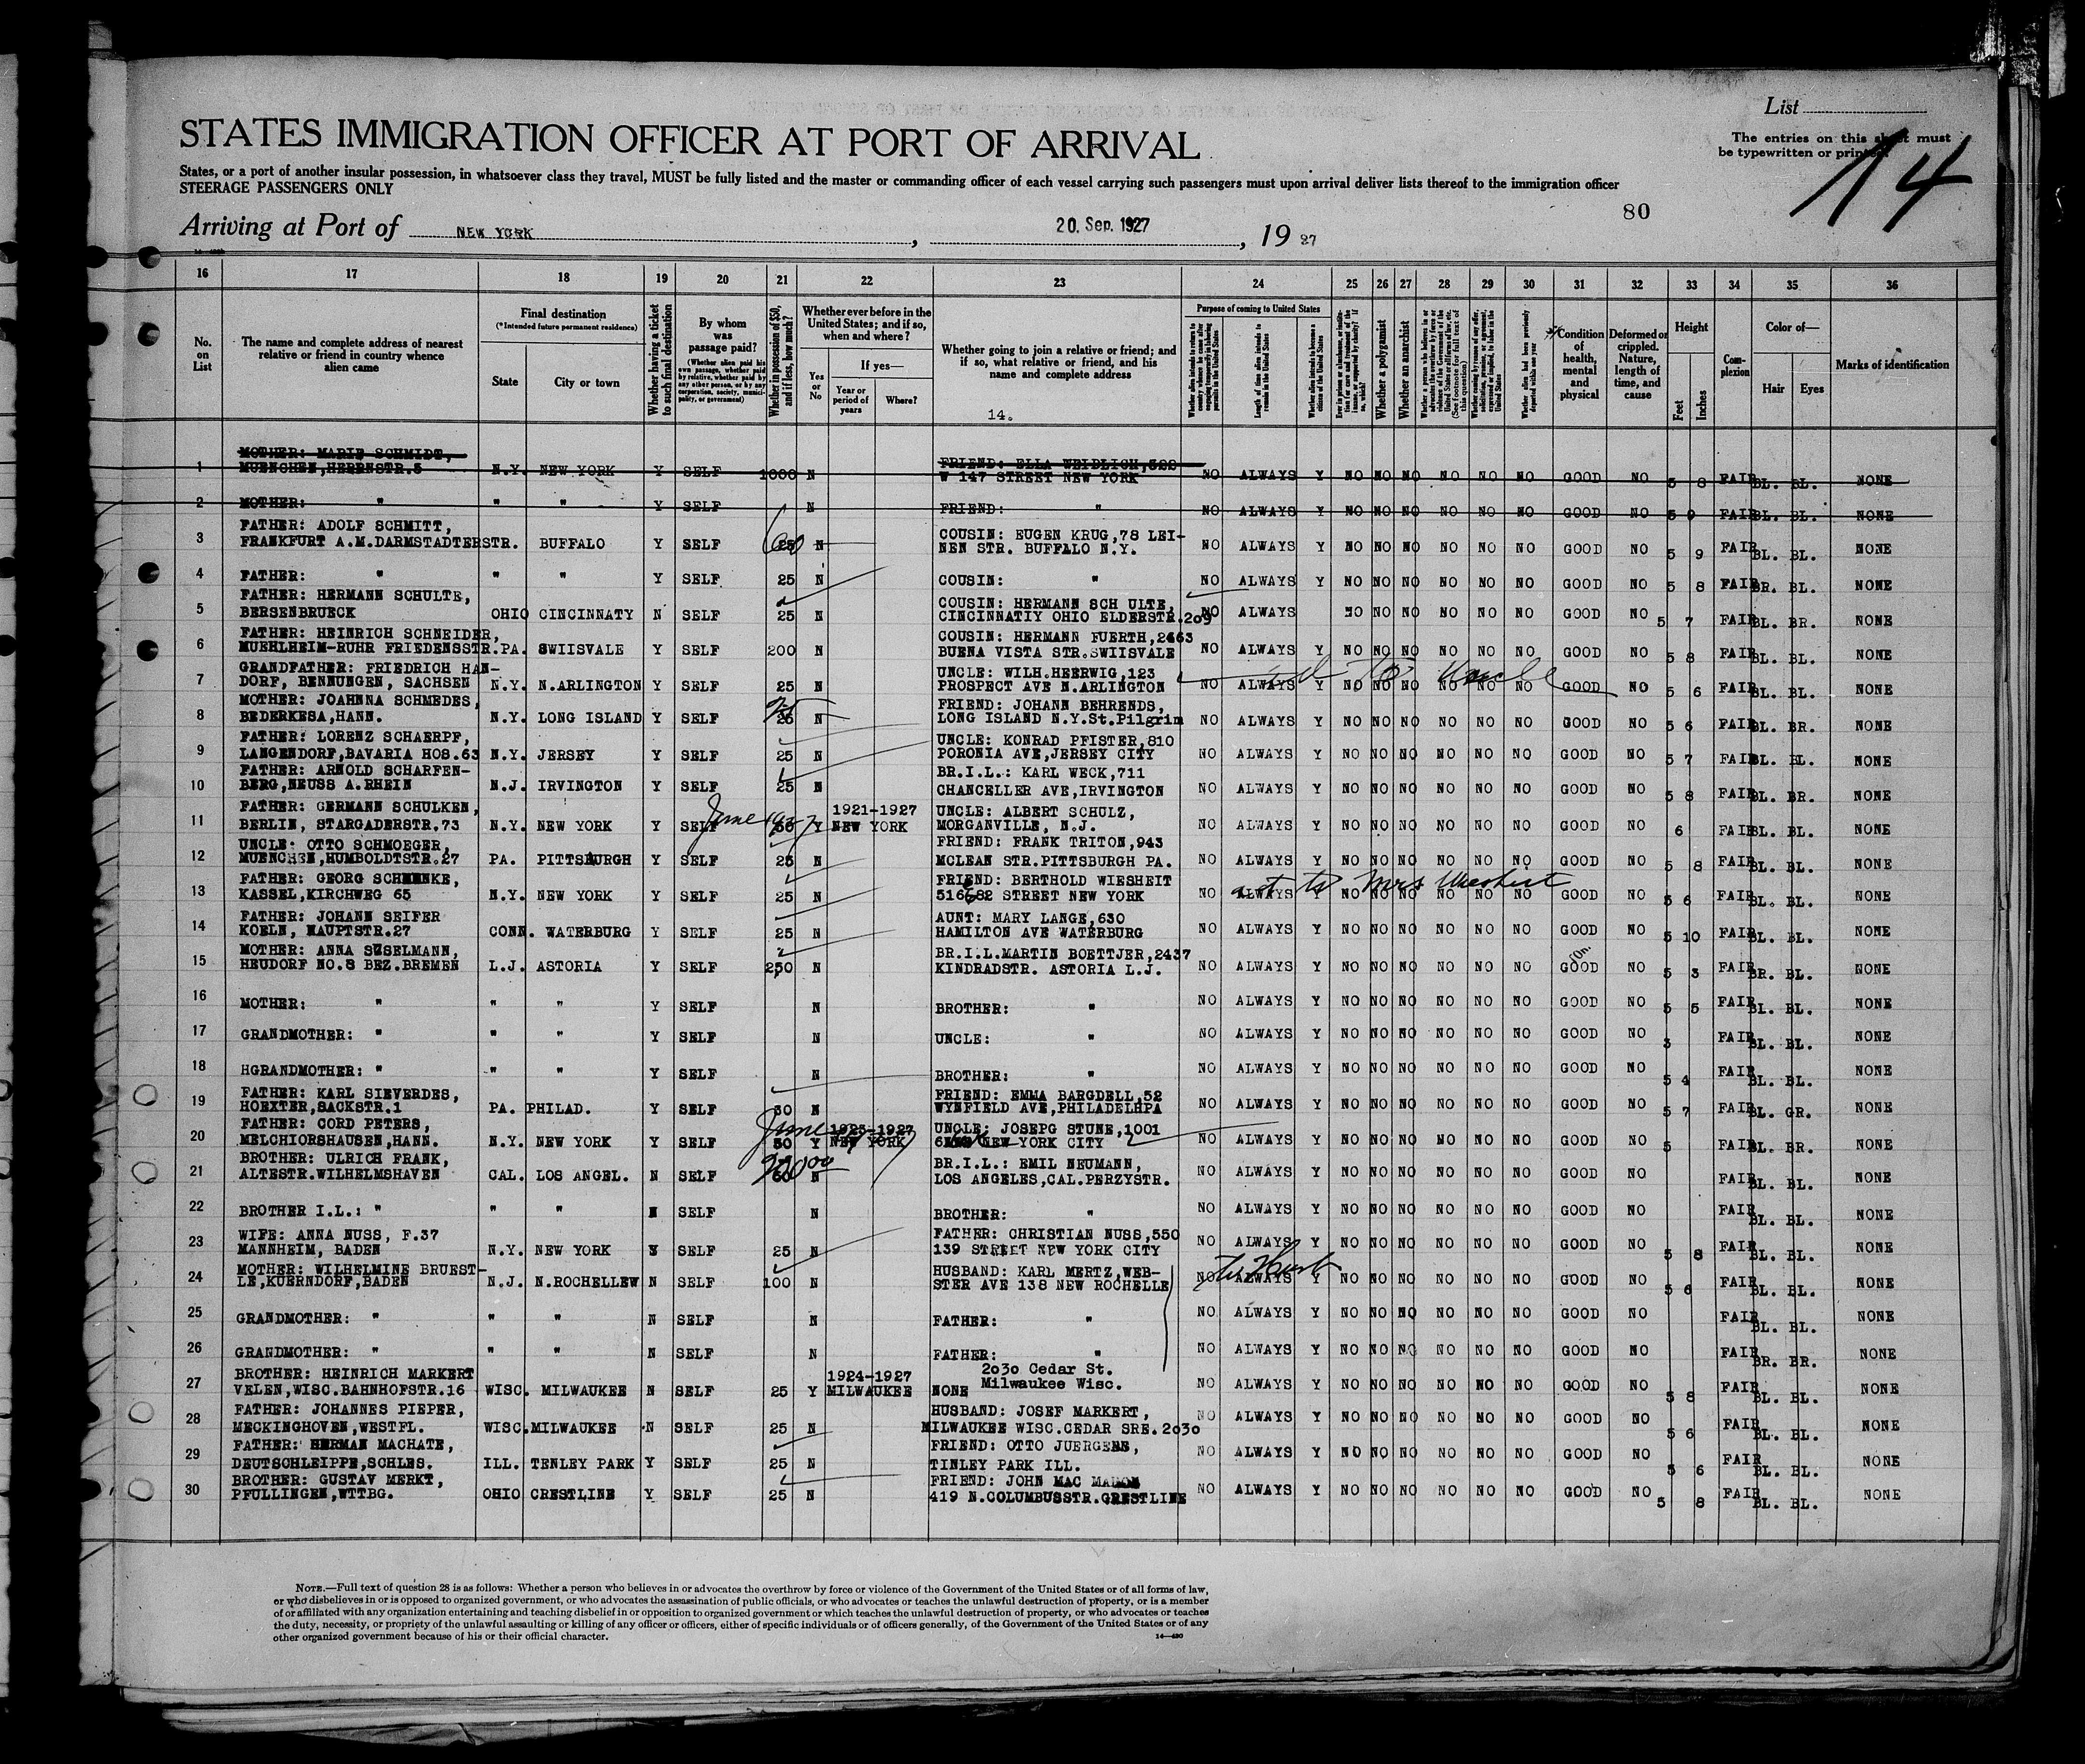 List
The entries on this sheet must
be typewritten or printed
14
STATES IMMIGRATION OFFICER AT PORT OF ARRIVAL
States, or a port of another insular possession, in whatsoever class they travel, MUST be fully listed and the master or commanding officer of each vessel carrying such passengers must upon arrival deliver lists thereof to the immigration officer
STEERAGE PASSENGERS ONLY
80
Arriving at Port of NEW YORK, 20. Sep. 1927, 19 27
16 17 18 19 20 21 22 23 24 25 26 27 28 29 30 31 32 33 34 35 36
No. on List
The name and complete address of nearest relative or friend in country whence alien came
Final destination
(*Intended future permanent residence)
State
City or town
Whether having a ticket to such final destination
By whom was passage paid?
Whether in possession of $50, and if less, how much?
Whether ever before in the United States; and if so, when and where?
Yes or No
If yes—
Year or period of years
Where?
Whether going to join a relative or friend; and if so, what relative or friend, and his name and complete address
14.
Purpose of coming to United States
Whether a polygamist
Whether an anarchist
Condition of health, mental and physical
Deformed or crippled. Nature, length of time, and cause
Height
Feet
Inches
Com-plexion
Color of—
Hair
Eyes
Marks of identification
1 MOTHER: MARIE SCHMIDT, FRIEND: ELLA WEIDLICH,522
MUENCHEN,HERRNSTR.5 N.Y. NEW YORK Y SELF 1000 N W 147 STREET NEW YORK NO ALWAYS Y NO NO NO NO NO NO GOOD NO 5 8 FAIR BL. BL. NONE
2 MOTHER: " " " Y SELF N FRIEND: " NO ALWAYS Y NO NO NO NO NO NO GOOD NO 5 9 FAIR BL. BL. NONE
3 FATHER: ADOLF SCHMITT, COUSIN: EUGEN KRUG,78 LEI-
FRANKFURT A.M.DARMSTADTERSTR. BUFFALO Y SELF 25 N NEN STR. BUFFALO N.Y. NO ALWAYS Y NO NO NO NO NO NO GOOD NO 5 9 FAIR BL. BL. NONE
4 FATHER: " " " Y SELF 25 N COUSIN: " NO ALWAYS Y NO NO NO NO NO NO GOOD NO 5 8 FAIR BR. BL. NONE
5 FATHER: HERMANN SCHULTE, COUSIN: HERMANN SCH ULTE,
BERSENBRUECK OHIO CINCINNATY N SELF 25 N CINCINNATIY OHIO ELDERSTR.209 NO ALWAYS NO NO NO NO NO NO GOOD NO 5 7 FAIR BL. BR. NONE
6 FATHER: HEINRICH SCHNEIDER, COUSIN: HERMANN FUERTH,2463
MUEHLHEIM-RUHR FRIEDENSSTR. PA. SWIISVALE Y SELF 200 N BUENA VISTA STR.SWIISVALE NO ALWAYS Y NO NO NO NO NO NO GOOD NO 5 8 FAIR BL. BL. NONE
7 GRANDFATHER: FRIEDRICH HAN- UNCLE: WILH.HEERWIG,123 to Uncle
DORF, BENNUNGEN, SACHSEN N.Y. N.ARLINGTON Y SELF 25 N PROSPECT AVE N.ARLINGTON NO ALWAYS Y NO NO NO NO NO NO GOOD NO 5 6 FAIR BL. BL. NONE
8 MOTHER: JOAHNNA SCHMEDES, FRIEND: JOHANN BEHRENDS,
BEDERKESA,HANN. N.Y. LONG ISLAND Y SELF 25 N LONG ISLAND N.Y.St.Pilgrim NO ALWAYS Y NO NO NO NO NO NO GOOD NO 5 6 FAIR BL. BR. NONE
9 FATHER: LORENZ SCHAERPF, UNCLE: KONRAD PFISTER,810
LANGENDORF,BAVARIA HOS.63 N.Y. JERSEY Y SELF 25 N PORONIA AVE,JERSEY CITY NO ALWAYS Y NO NO NO NO NO NO GOOD NO 5 7 FAIR BL. BL. NONE
10 FATHER: ARNOLD SCHARFEN- BR.I.L.: KARL WECK,711
BERG,NEUSS A.RHEIN N.J. IRVINGTON Y SELF 25 N CHANCELLER AVE,IRVINGTON NO ALWAYS Y NO NO NO NO NO NO GOOD NO 5 8 FAIR BL. BR. NONE
11 FATHER: GERMANN SCHULKEN, June 1927 1921-1927 UNCLE: ALBERT SCHULZ,
BERLIN, STARGADERSTR.73 N.Y. NEW YORK Y SELF 50 Y NEW YORK MORGANVILLE, N.J. NO ALWAYS Y NO NO NO NO NO NO GOOD NO 6 FAIR BL. BL. NONE
12 UNCLE: OTTO SCHMOEGER, FRIEND: FRANK TRITON,943
MUENCHEN,HUMBOLDTSTR.27 PA. PITTSBURGH Y SELF 25 N MCLEAN STR.PITTSBURGH PA. NO ALWAYS Y NO NO NO NO NO NO GOOD NO 5 8 FAIR BL. BL. NONE
13 FATHER: GEORG SCHMENKE, FRIEND: BERTHOLD WIESHEIT to Mrs Wiesheit
KASSEL,KIRCHWEG 65 N.Y. NEW YORK Y SELF 25 N 516 82 STREET NEW YORK NO ALWAYS Y NO NO NO NO NO NO GOOD NO 5 6 FAIR BL. BL. NONE
14 FATHER: JOHANN SEIFER AUNT: MARY LANGE,630
KOELN, HAUPTSTR.27 CONN. WATERBURG Y SELF 25 N HAMILTON AVE WATERBURG NO ALWAYS Y NO NO NO NO NO NO GOOD NO 5 10 FAIR BL. BL. NONE
15 MOTHER: ANNA SUSELMANN, BR.I.L.MARTIN BOETTJER,2437
HEUDORF NO.8 BEZ.BREMEN L.J. ASTORIA Y SELF 250 N KINDRADSTR. ASTORIA L.J. NO ALWAYS Y NO NO NO NO NO NO GOOD NO 5 3 FAIR BR. BL. NONE
16 MOTHER: " " " Y SELF N BROTHER: " NO ALWAYS Y NO NO NO NO NO NO GOOD NO 5 5 FAIR BL. BL. NONE
17 GRANDMOTHER: " " " Y SELF N UNCLE: " NO ALWAYS Y NO NO NO NO NO NO GOOD NO 3 FAIR BL. BL. NONE
18 HGRANDMOTHER: " " " Y SELF N BROTHER: " NO ALWAYS Y NO NO NO NO NO NO GOOD NO 5 4 FAIR BL. BL. NONE
19 FATHER: KARL SIEVERDES, FRIEND: EMMA BARGDELL,52
HOEXTER,SACKSTR.1 PA. PHILAD. Y SELF 30 N WYNFIELD AVE,PHILADELHPA NO ALWAYS Y NO NO NO NO NO NO GOOD NO 5 7 FAIR BL. GR. NONE
20 FATHER: CORD PETERS, June 1923-1927 UNCLE: JOSEPG STUNE,1001
MELCHIORSHAUSEN,HANN. N.Y. NEW YORK Y SELF 50 Y NEW YORK NEW YORK CITY NO ALWAYS Y NO NO NO NO NO NO GOOD NO 5 FAIR BL. BR. NONE
21 BROTHER: ULRICH FRANK, BR.I.L.: EMIL NEUMANN,
ALTESTR.WILHELMSHAVEN CAL. LOS ANGEL. N SELF 60 N LOS ANGELES,CAL.PERZYSTR. NO ALWAYS Y NO NO NO NO NO NO GOOD NO FAIR BL. BL. NONE
22 BROTHER I.L.: " " " N SELF N BROTHER: " NO ALWAYS Y NO NO NO NO NO NO GOOD NO FAIR BL. BL. NONE
23 WIFE: ANNA NUSS, F.37 FATHER: CHRISTIAN NUSS,550
MANNHEIM, BADEN N.Y. NEW YORK Y SELF 25 N 139 STREET NEW YORK CITY NO ALWAYS Y NO NO NO NO NO NO GOOD NO 5 8 FAIR BL. BL. NONE
24 MOTHER: WILHELMINE BRUEST- HUSBAND: KARL MERTZ,WEB-
LE,KUERNDORF,BADEN N.J. N.ROCHELLEW N SELF 100 N STER AVE 138 NEW ROCHELLE NO ALWAYS Y NO NO NO NO NO NO GOOD NO 5 6 FAIR BL. BL. NONE
25 GRANDMOTHER: " " " N SELF N FATHER: " NO ALWAYS Y NO NO NO NO NO NO GOOD NO FAIR BL. BL. NONE
26 GRANDMOTHER: " " " N SELF N FATHER: " NO ALWAYS Y NO NO NO NO NO NO GOOD NO FAIR BR. BR. NONE
2030 Cedar St.
27 BROTHER: HEINRICH MARKERT 1924-1927 Milwaukee Wisc.
VELEN,WISC.BAHNHOFSTR.16 WISC. MILWAUKEE N SELF 25 Y MILWAUKEE NONE NO ALWAYS Y NO NO NO NO NO NO GOOD NO 5 8 FAIR BL. BL. NONE
28 FATHER: JOHANNES PIEPER, HUSBAND: JOSEF MARKERT,
MECKINGHOVEN,WESTFL. WISC. MILWAUKEE N SELF 25 N MILWAUKEE WISC.CEDAR SRE.2030 NO ALWAYS Y NO NO NO NO NO NO GOOD NO 5 6 FAIR BL. BL. NONE
29 FATHER: HERMAN MACHATE, FRIEND: OTTO JUERGENS,
DEUTSCHLEIPPE,SCHLES. ILL. TENLEY PARK Y SELF 25 N TINLEY PARK ILL. NO ALWAYS Y NO NO NO NO NO NO GOOD NO 5 6 FAIR BL. BL. NONE
30 BROTHER: GUSTAV MERKT, FRIEND: JOHN MAC
PFULLINGEN,WTTBG. OHIO CRESTLINE Y SELF 25 N 419 N.COLUMBUSSTR.CRESTLINE NO ALWAYS Y NO NO NO NO NO NO GOOD NO 5 8 FAIR BL. BL. NONE
NOTE.—Full text of question 28 is as follows: Whether a person who believes in or advocates the overthrow by force or violence of the Government of the United States or of all forms of law,
or who disbelieves in or is opposed to organized government, or who advocates the assassination of public officials, or who advocates or teaches the unlawful destruction of property, or is a member
of or affiliated with any organization entertaining and teaching disbelief in or opposition to organized government or which teaches the unlawful destruction of property, or who advocates or teaches
the duty, necessity, or propriety of the unlawful assaulting or killing of any officer or officers, either of specific individuals or of officers generally, of the Government of the United States or of any
other organized government because of his or their official character.
14—430